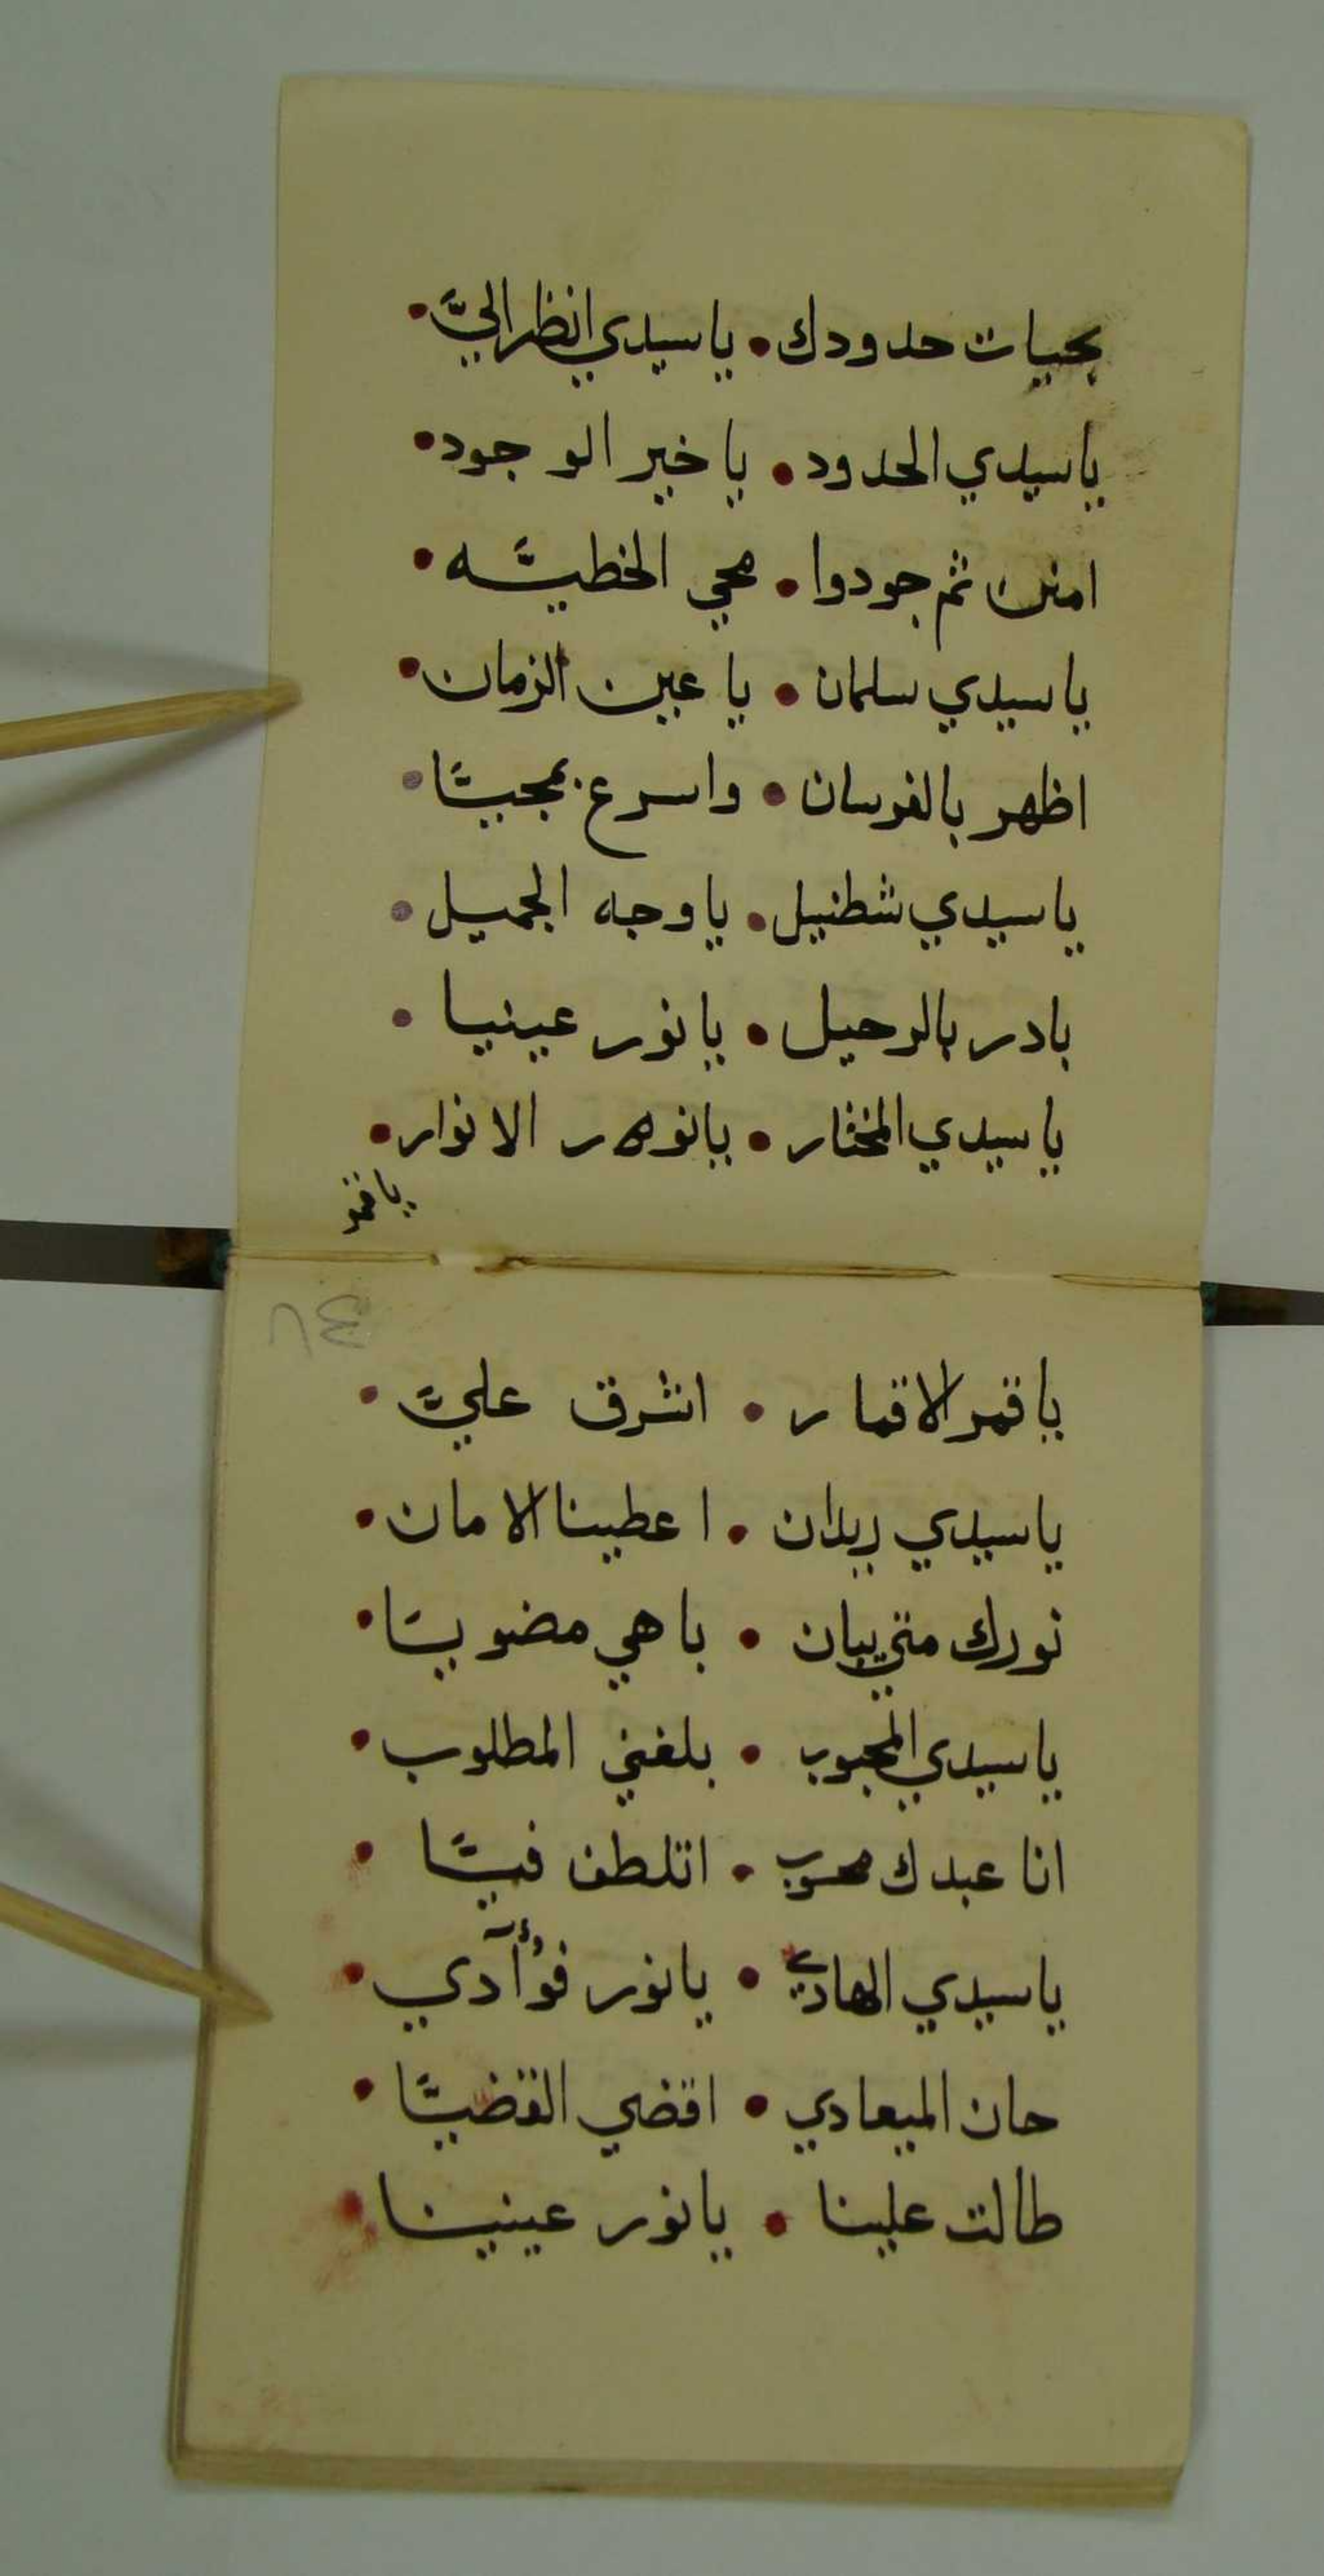 بحيات حدودك • ياسيدي انظر اليَّ •
ياسيدي الحدود • يا خير الوجود •
امنن ثم جودوا • محي الخطيَّه •
ياسيدي سلمان • يا عين الزمان •
اظهر بالفرسان • واسرع بمجيَّا •
ياسيدي شطنيل • ياوجه الجميل •
بادر بالرحيل • يانور عينيا •
ياسيدي المختار • يانور الانوار •
ياقمر
ياقمر الاقمار • اشرق عليَّ •
٦٤
ياسيدي ريدان • اعطينا الامان •
نورك متي يبان • باهي مضويَّا •
ياسيدي المحبوب • بلغني المطلوب •
انا عبدك محسوب • اتلطف فيَّا •
ياسيدي الهادي • يانور فؤآدي •
حان الميعادي • اقضي القضيَّا •
طالت علينا • يانور عينينا •